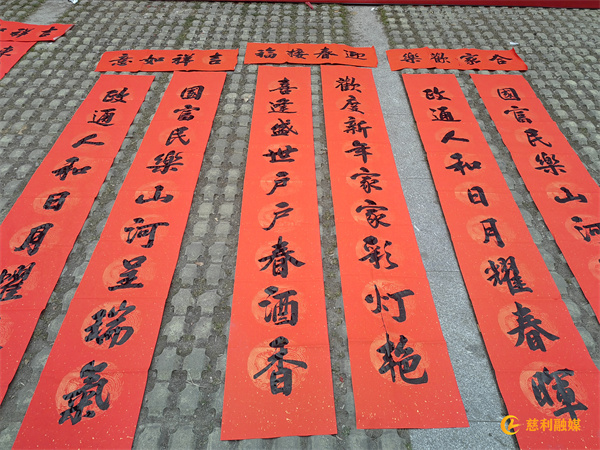 吉祥
吉祥如意
國富民樂山河呈瑞氣
政通人和日月耀
迎春接福
歡度新年家家彩灯艳
喜逢盛世户户春酒香
合家歡樂
國富民樂山河
政通人和日月耀春暉
慈利融媒